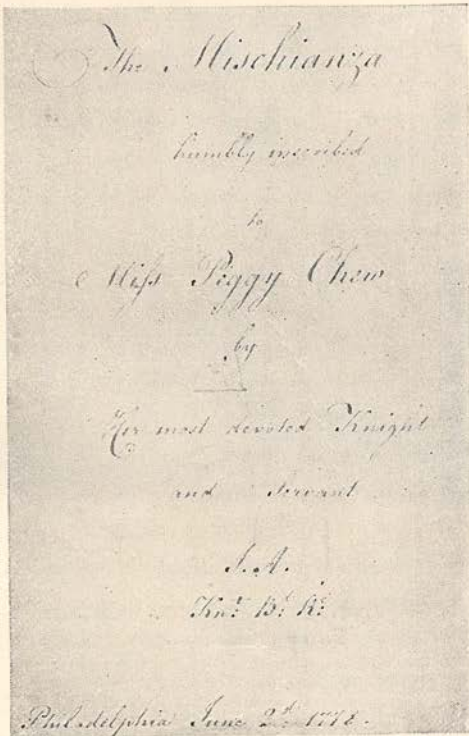 The Mischianza
humbly inscribed
to
Miſs Peggy Chew
by
Her most devoted Knight
and Servant
J. A.
Knᵗ Bᵈ Rᵉ
Philadelphia June 2ᵈ 1778.